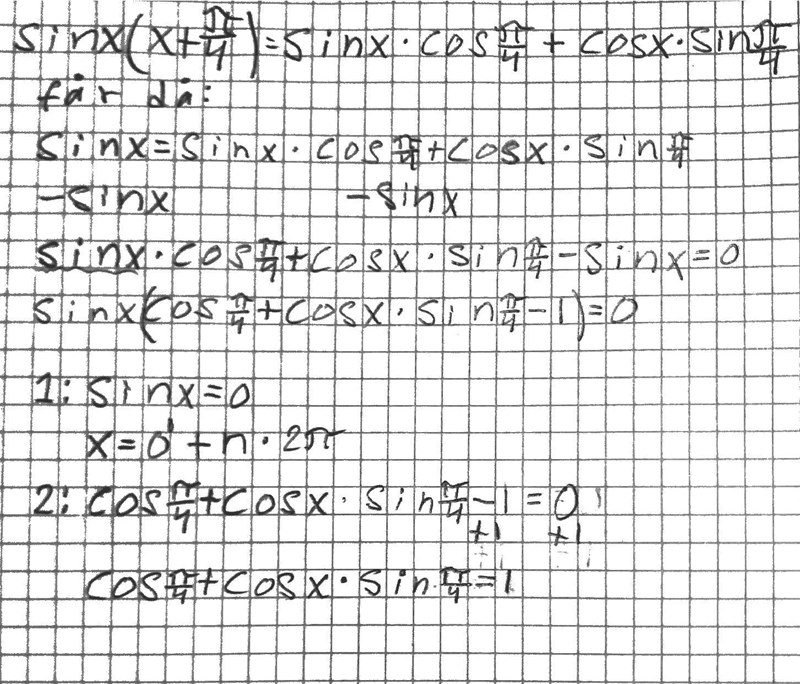 sinx(x+π/4)=sinx·cosπ/4 + cosx·sinπ/4
får då:
sinx=sinx·cosπ/4+cosx·sinπ/4
-sinx -sinx
sinx·cosπ/4+cosx·sinπ/4-sinx=0
sinx(cosπ/4+cosx·sinπ/4-1)=0
1: sinx=0
x=0+n·2π
2: cosπ/4+cosx·sinπ/4-1=0
+1 +1
cosπ/4+cosx·sinπ/4=1